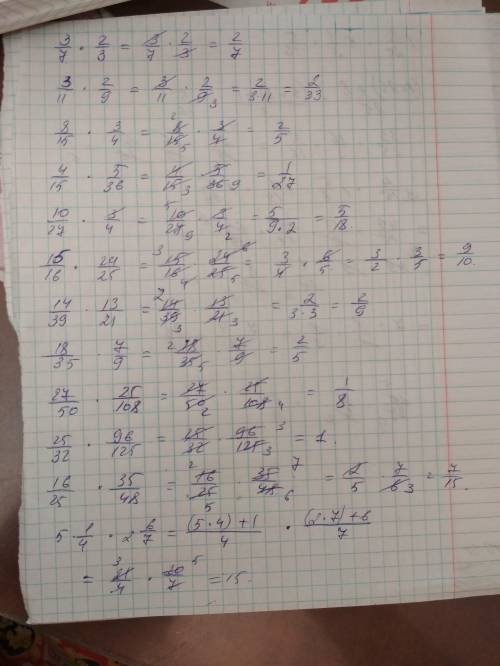 3/7 · 2/3 = 3/7 · 2/3 = 2/7
3/11 · 2/9 = 3/11 · 2/9 3 = 2/3·11 = 2/33
8/15 · 3/4 = 2 8/15 5 · 3/4 = 2/5
4/15 · 5/36 = 4/15 3 · 5/36 9 = 1/27
10/27 · 3/4 = 5 10/27 9 · 3/4 2 = 5/9·2 = 5/18
15/16 · 24/25 = 3 15/16 4 · 24/25 6 5 = 3/4 · 6/5 = 3/2 · 3/5 = 9/10
14/39 · 13/21 = 2 14/39 3 · 13/21 3 = 2/3·3 = 2/9
18/35 · 7/9 = 2 18/35 5 · 7/9 = 2/5
27/50 · 25/108 = 27/50 2 · 25/108 4 = 1/8
25/32 · 96/125 = 25/32 · 96/125 3 3 = 1.
16/25 · 35/48 = 2 16/25 5 · 35/48 7 6 = 2/5 · 7/6 3 = 7/15.
5 · 1/4 · 2 6/7 = (5·4)+1/4 · (2·7)+6/7
= 3 21/4 · 20/7 5 = 15.